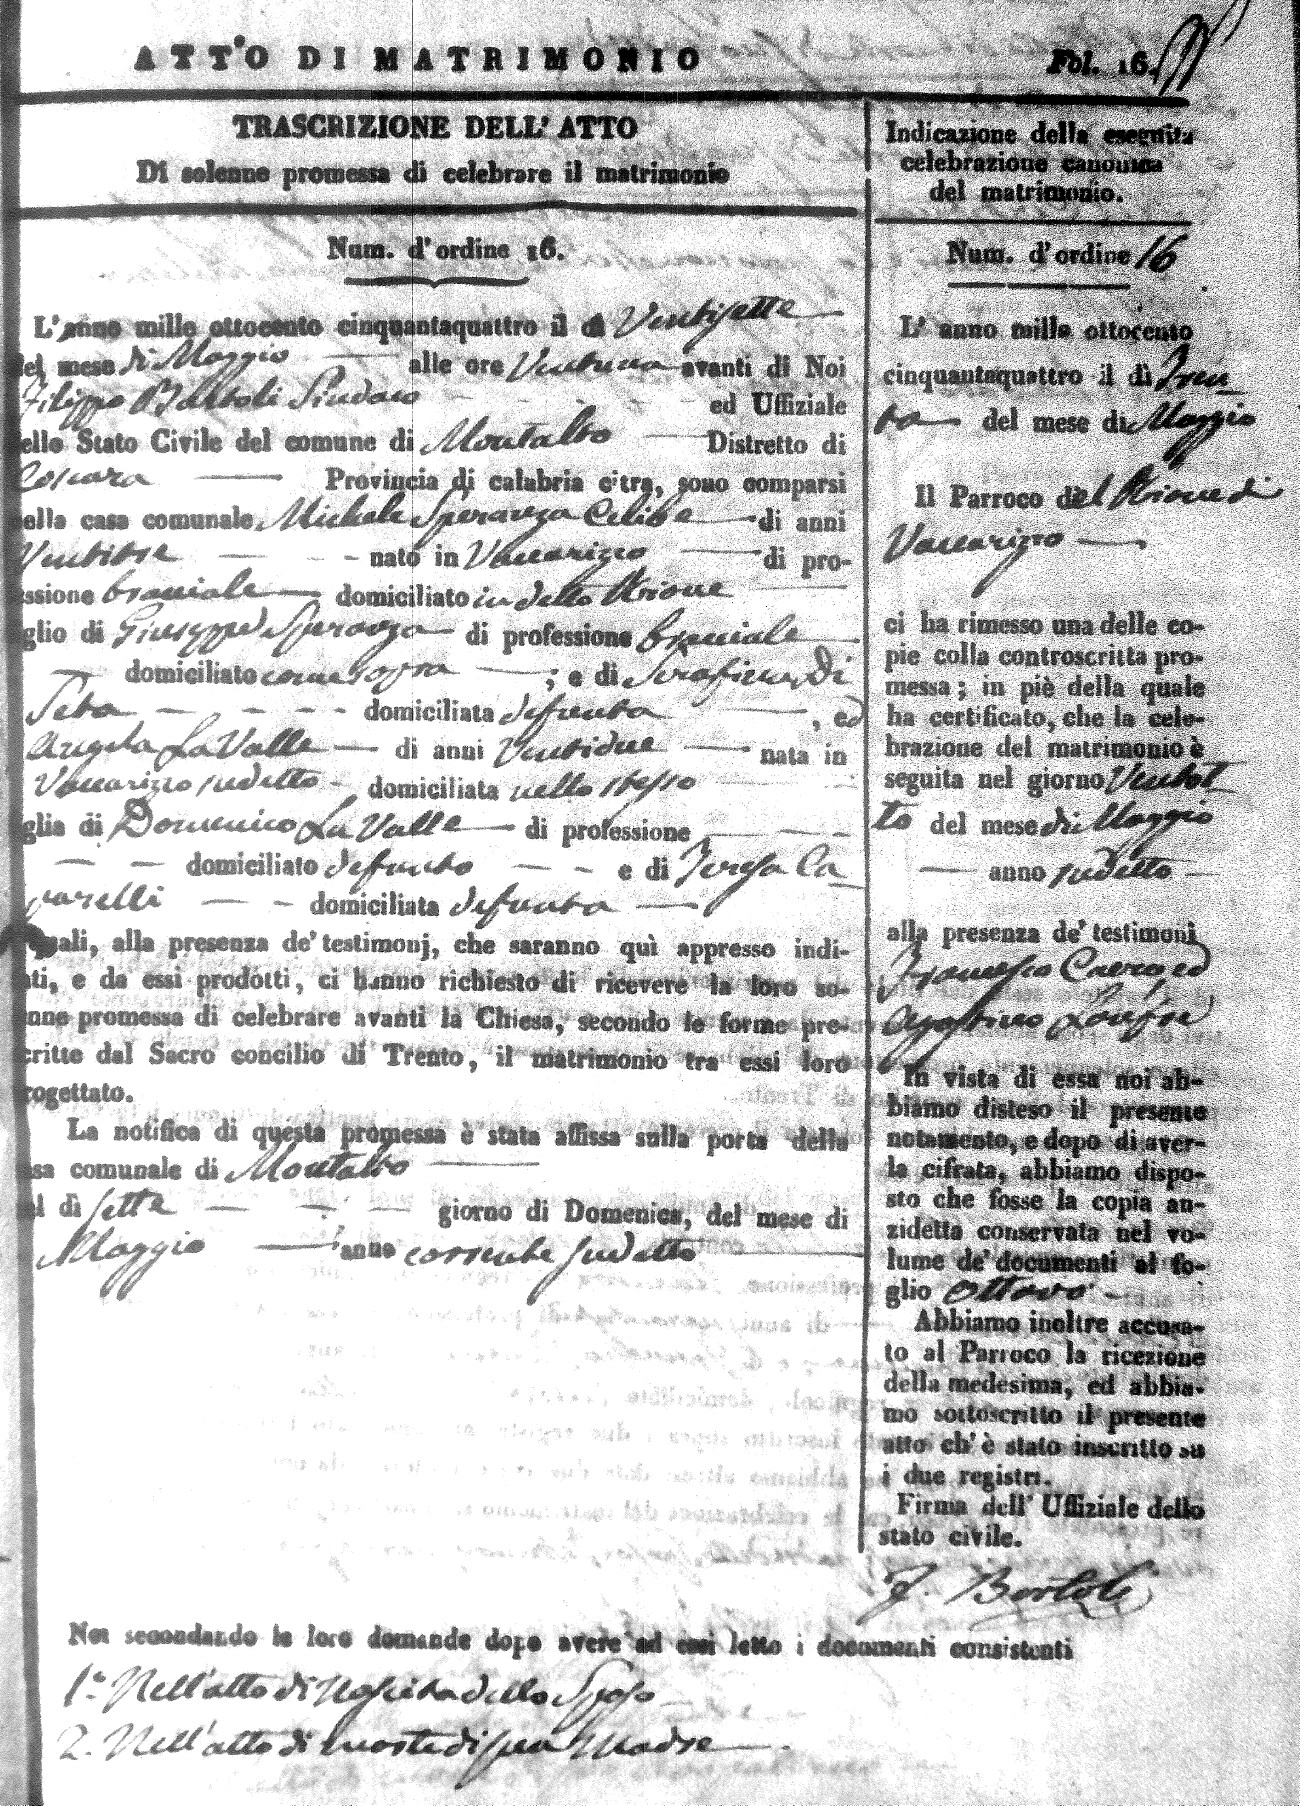 ATTO DI MATRIMONIO
Fol. 16.
TRASCRIZIONE DELL' ATTO
Di solenne promessa di celebrare il matrimonio
Num. d' ordine 16.
L' anno mille ottocento cinquantaquattro il dì Ventisette
del mese di Maggio alle ore Ventuna avanti di Noi
Filippo Bartoli Sindaco ed Uffiziale
ello Stato Civile del comune di Montalto Distretto di
Provincia di calabria citra, sono comparsi
nella casa comunale Michele Speranza Celibe di anni
Ventitre nato in Vaccarizzo di pro-
essione bracciale domiciliato in detto Rione
glio di Giuseppe Speranza di professione bracciale
domiciliato come sopra ; e di Serafina Di
Seta domiciliata defunta , ed
Angela La Valle di anni Ventidue nata in
Vaccarizzo sudetto domiciliata nello stesso
glia di Domenico La Valle di professione
domiciliato defunto e di Teresa Ca
parelli domiciliata defunta
quali, alla presenza de' testimonj, che saranno quì appresso indi-
ati, e da essi prodotti, ci hanno richiesto di ricevere la loro so-
enne promessa di celebrare avanti la Chiesa, secondo le forme pre-
critte dal Sacro concilio di Trento, il matrimonio tra essi loro
rogettato.
La notifica di questa promessa è stata affissa sulla porta della
asa comunale di Montalto
el dì sette giorno di Domenica, del mese di
Maggio anno corrente sudetto
Indicazione della eseguita
celebrazione canonica
del matrimonio.
Num. d' ordine 16
L' anno mille ottocento
cinquantaquattro il dì Tren
ta del mese di Maggio
Il Parroco del Rione di
Vaccarizzo
ci ha rimesso una delle co-
pie colla controscritta pro-
messa; in piè della quale
ha certificato, che la cele-
brazione del matrimonio è
seguita nel giorno Ventot
to del mese di Maggio
anno sudetto
alla presenza de' testimoni
Francesco ed
In vista di essa noi ab-
biamo disteso il presente
notamento, e dopo di aver-
la cifrata, abbiamo dispo-
sto che fosse la copia an-
zidetta conservata nel vo-
lume de' documenti al fo-
glio Ottavo
Abbiamo inoltre accusa-
to al Parroco la ricezione
della medesima, ed abbia-
mo sottoscritto il presente
atto ch' è stato inscritto su
i due registri.
Firma dell' Uffiziale dello
stato civile.
F. Bartoli
Noi secondando le loro domande dopo avere ad essi letto i documenti consistenti
1.° Nell'atto di Nascita dello Sposo
2. Nell'atto di morte di sua Madre